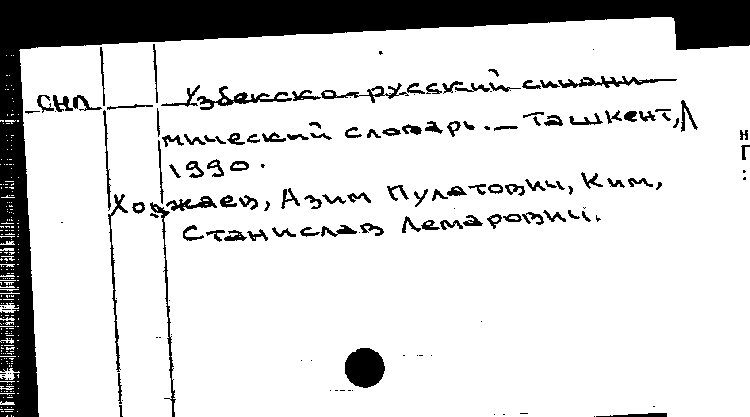 СНЛ Узбекско-русский синони
мический словарь. – Ташкент,
1990.
Ходжаев, Азим Пулатович, Ким,
Станислав Лемарович.